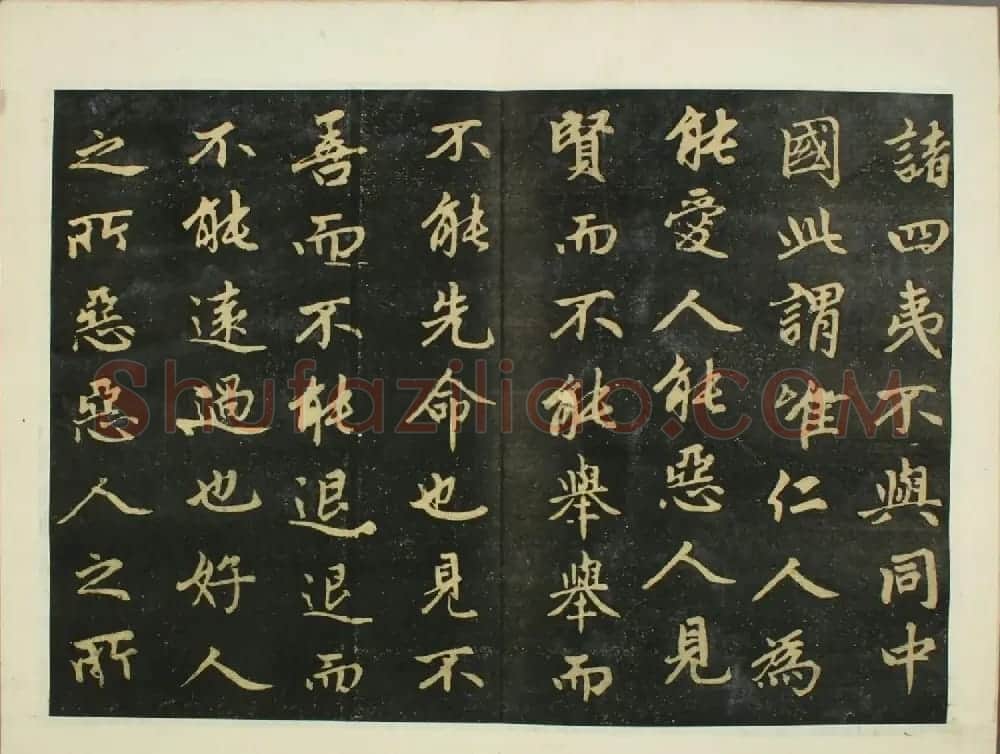 諸四夷不與同中
國此謂唯仁人為
能愛人能惡人見
賢而不能舉舉而
不能先命也見不
善而不能退退而
不能遠過也好人
之所惡惡人之所
Shufaziliao.COM